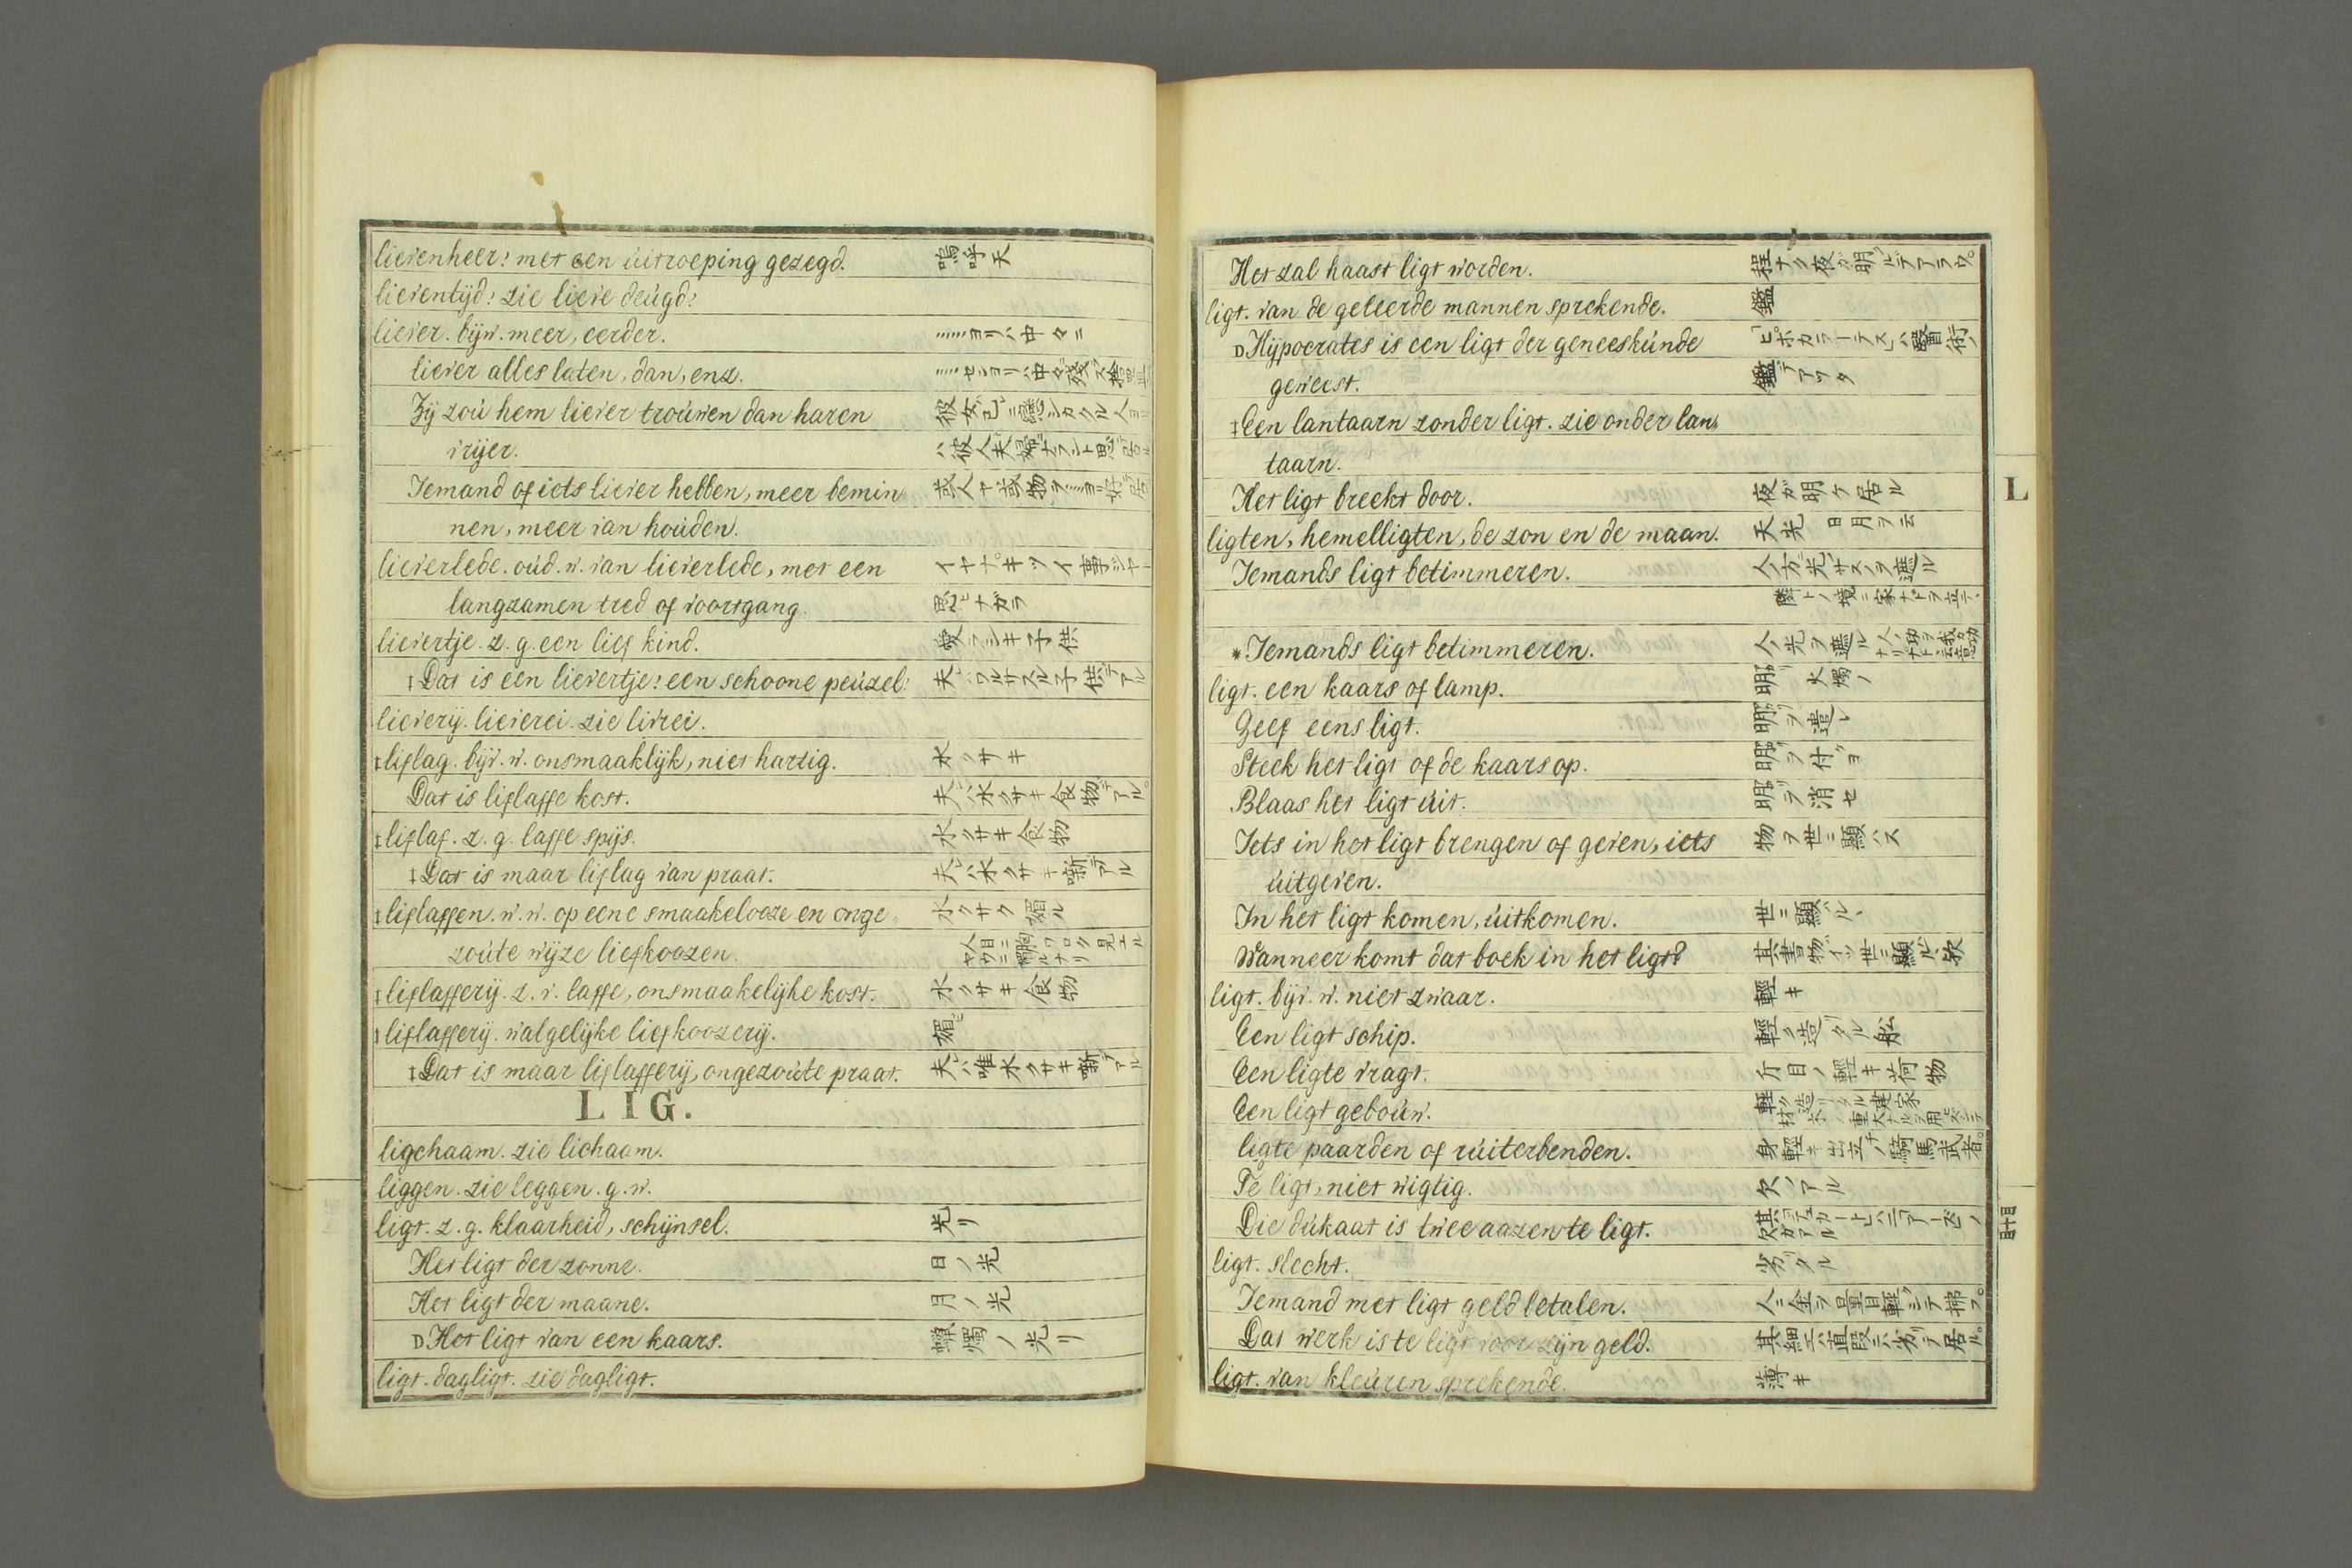 lievenheer! met een uitroeping gezegd. 嗚呼天
lieventijd! zie lieve deugd!
liever. bijw. meer, eerder. ……ヨリハ中々ニ
liever alles laten, dan, enz.
Zij zoú hem liever troúwen dan haren
vrijer.
Iemand of iets liever hebben, meer bemin
nen, meer van hoúden.
lieverlede. oúd. w. van lieverlede, met een
langzamen tred of voortgang. 思ヒナガラ
lievertje. z. g. een lief kind. 愛ラシキ子供
‡Dat is een lievertje! een schoone peúzel! 夫ハワルサスル子供デアル
lieverij. lieverei. zie livrei.
‡liflag. bijv. w. onsmaaklijk, niet hartig. 水クサキ
Dat is liflaffe kost. 夫ハ水クサキ食物デアル。
‡liflaf. z. g. laffe spijs. 水クサキ食物
‡Dat is maar liflag van praat. 夫ハ水クサキ噺デアル
‡liflaffen. w. w. op eene smaakelooze en onge
zoúte wijze liefkoozen.
‡liflafferij. z. v. laffe, onsmaakelijke kost. 水クサキ食物
‡liflafferij. walgelijke liefkoozerij. 媚ビ
‡Dat is maar liflafferij, ongezoúte praat. 夫ハ唯水クサキ噺デアル
LIG.
ligchaam. zie lichaam.
liggen. zie leggen. g. w.
ligt. z. g. klaarheid, schijnsel. 光リ
Het ligt der zonne. 日ノ光
Het ligt der maane. 月ノ光
D Het ligt van een kaars. 蠟燭ノ光リ
ligt. dagligt. zie dagligt.
Het zal haast ligt worden. 程ナク夜ガ明ルデアラウ。
ligt. van de geleerde mannen sprekende. 鑑
D Hijpocrates is een ligt der geneeskúnde
geweest. 鑑デアツタ
‡Een lantaarn zonder ligt. zie onder lan
taarn.
Het ligt breekt door. 夜ガ明ケ居ル
ligten, hemelligten, de zon en de maan. 天光 日月ヲ云
Iemands ligt betimmeren. 人ノ方ニ光ノサスヲ遮ル
隣トノ境ニ家ナドヲ立テ、
*Iemands ligt betimmeren. 人ノ光ヲ遮ル
ligt. een kaars of lamp. 明リ 火燭ノ
Geef eens ligt. 明リヲ遣レ
Steek het ligt of de kaars op. 明リヲ付ケヨ
Blaas het ligt úit. 明リヲ消セ
Iets in het ligt brengen of geven, iets 物ヲ世ニ顯ハス
úitgeven.
In het ligt komen, úitkomen. 世ニ顯ハル、
Wanneer komt dat boek in het ligt? 其書物ハイツ世ニ顯ハル、歟
ligt. bijv. w. niet zwaar. 輕キ
Een ligt schip. 輕ク造リタル舩
Een ligte vragt. 斤目ノ輕キ荷物
Een ligt geboúw. 軽ク造リタル建家
ligte paarden of rúiterbenden. 身輕キ出立チノ騎馬武者。
Te ligt, niet wigtig. 欠ノアル
Die dúkaat is twee aazen te ligt.
ligt. slecht. 劣リタル
Iemand met ligt geld betalen. 人ニ金ヲ量目輕クシテ拂フ。
Dat werk is te ligt voor zijn geld. 其細工ハ直段ニハ劣リテ居ル。
ligt. van kleúren sprekende. 薄キ
L